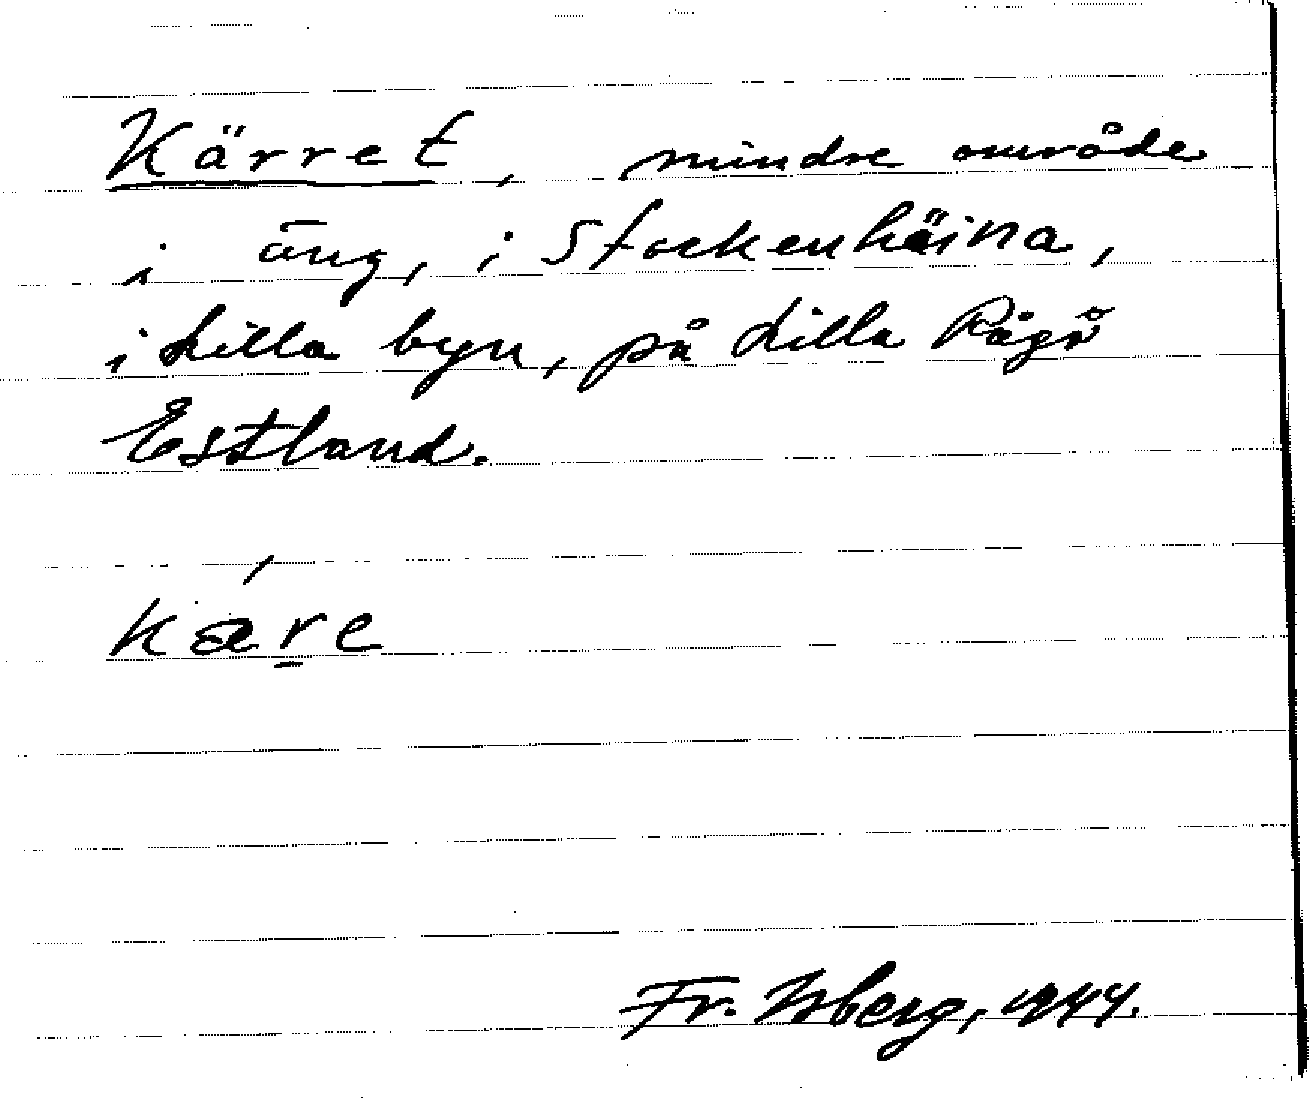 Kärret, mindre område
i äng, i Stockenhäina,
i Lilla byn, på Lilla Rågö
Estland.
kære
Fr. Isberg, 1944.